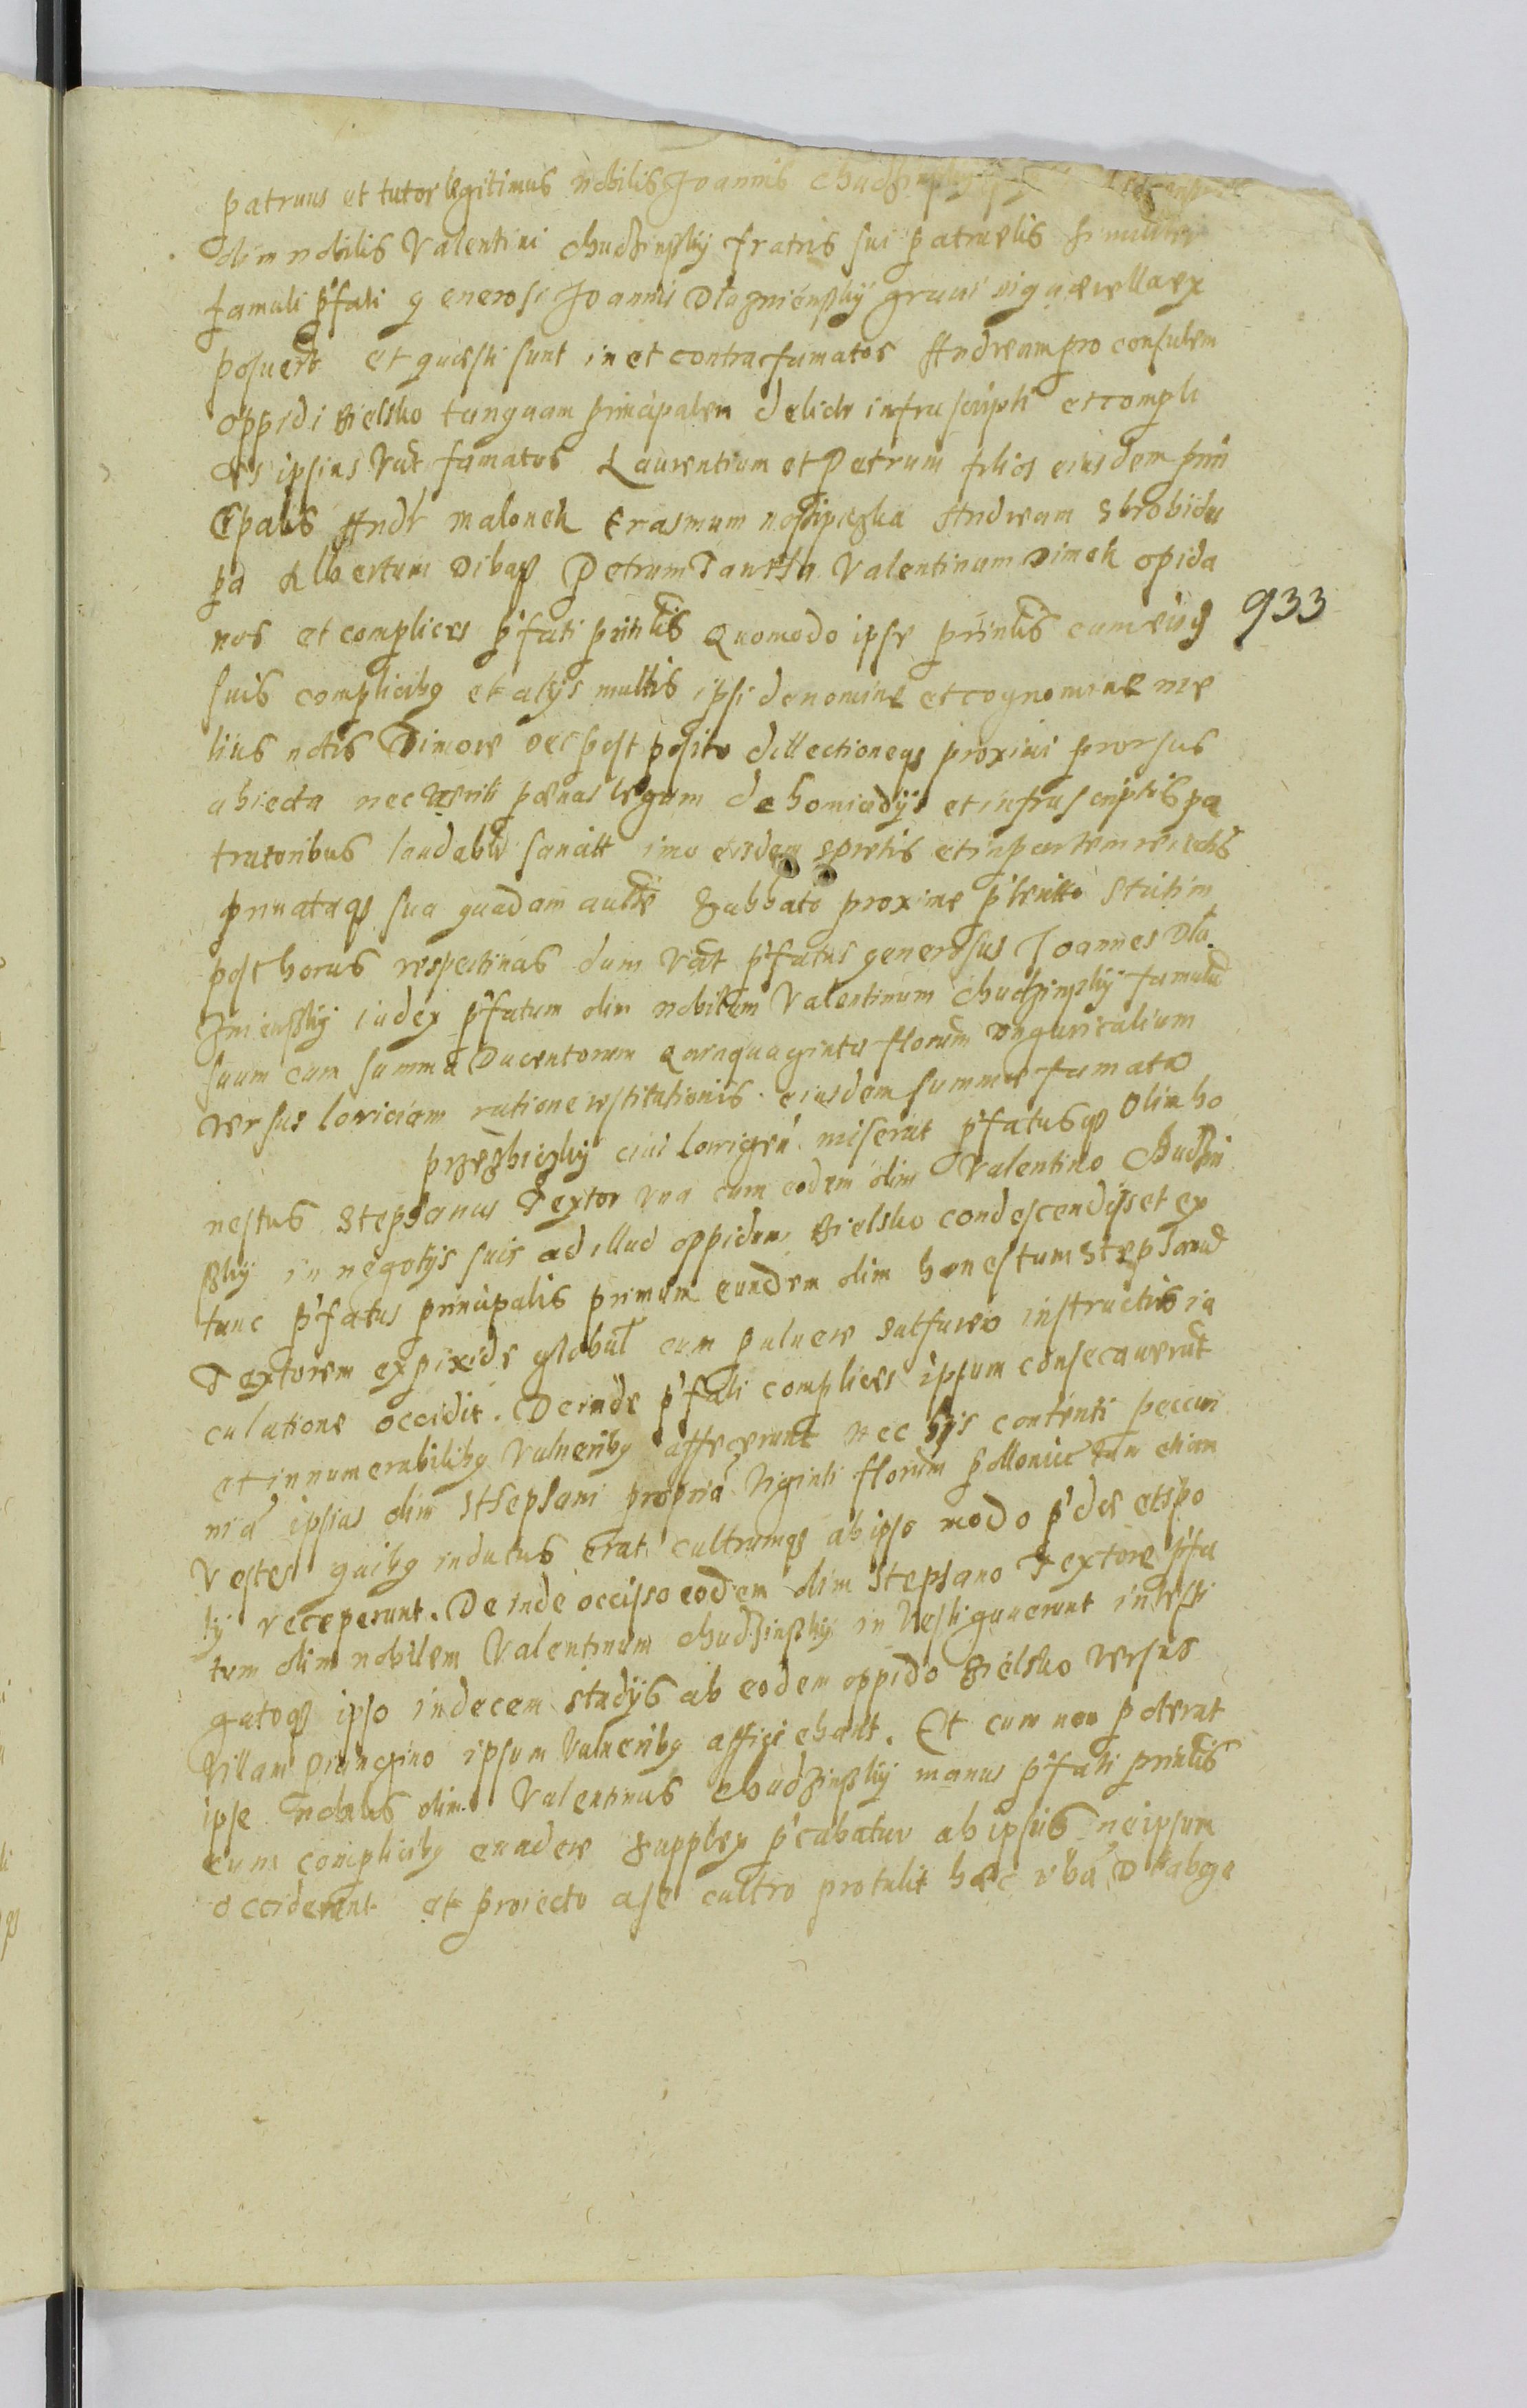 patruus et tutor legitimus nobilis Joannis Chudzinskÿ
olim nobilis Valentini Chudzinskÿ fratris sui patruelis
famuli p'fati generosi Joannis Dlaznienskÿ graui uiq querellaex
posuert et quæsti sunt in et contra famatos Andream proconsulem
oppidi Bielsko tanquam principalem delicti infrascripti et compli
ces ipsius Vut famatos Laurentium et Petrum filios eiusdem prin
cipalis Andr Malonek Erasmum Andream Skrobidu
pa Albertum Dibas Petrum Valentinum Dimek opida
nos et complices p'fati prinlis Quomodo ipse prinlis cum eisd
suis complicibg et alijs multis ipsi de nomine et cognomine me
lius notis Timore Dei post posito dillectioneqz proximi prorsus
abiecta nec ueriti pœnas legum de homicidijs et infrascriptis pa
tratoribus laudablr sancitt imo eisdem spretis et in partem reiectis
priuataqz sua quadam autte Sabbato proxime p'teritto statim
post horas vespertinas dum Vut p'fatus generosus Joannes Dla
znienskÿ iudex p'fatum olim nobilem Valentinum Chudzinskÿ famulu
suum cum summa Ducentorum Quinquaginta florum Vngaricalium
versus Louiciam ratione restitutionis eiusdem summæ famato
przezbieskÿ ciui Louicien miserat p'fatusqz olim ho
nestus Stephanus Textor vna cum eodem olim Valentino Chudzin
skÿ in negotijs suis ad illud oppidum Bielsko condescendisset ex
tunc p'fatus principalis primum eundem olim honestum Stephanu
Textorem ex pixide globul cum puluere sulfureo instructis ia
culatione occidit. Deinde p'fati complices ipsum consecauerut
et innumerabilibg Vulneribg affecerunt nec hijs contenti pecuni
niā ipsius olim Stephani propriā Viginti florum pollonic tum etiam
Vestes quibg indutus erat cultrumqz ab ipso modo p'dco et spo
lij receperunt. Deinde occisso eodem olim Stephano Textore p'fa
tum olim nobilem Valentinum Chudzinskÿ inuestigauerunt inuesti
gatoqz ipso in decem stadijs ab eodem oppido Bielsko versus
Villam ipsum Vulneribg afficiebant. Et cum non poterat
ipse nobilis olim Valentinus Chudzinskÿ manus p'fati prinlis
cum complicibg euadere supplex p'cabatur ab ipsis ne ipsum
occiderent et proiecto a se cultro protulit hæc v'ba
933